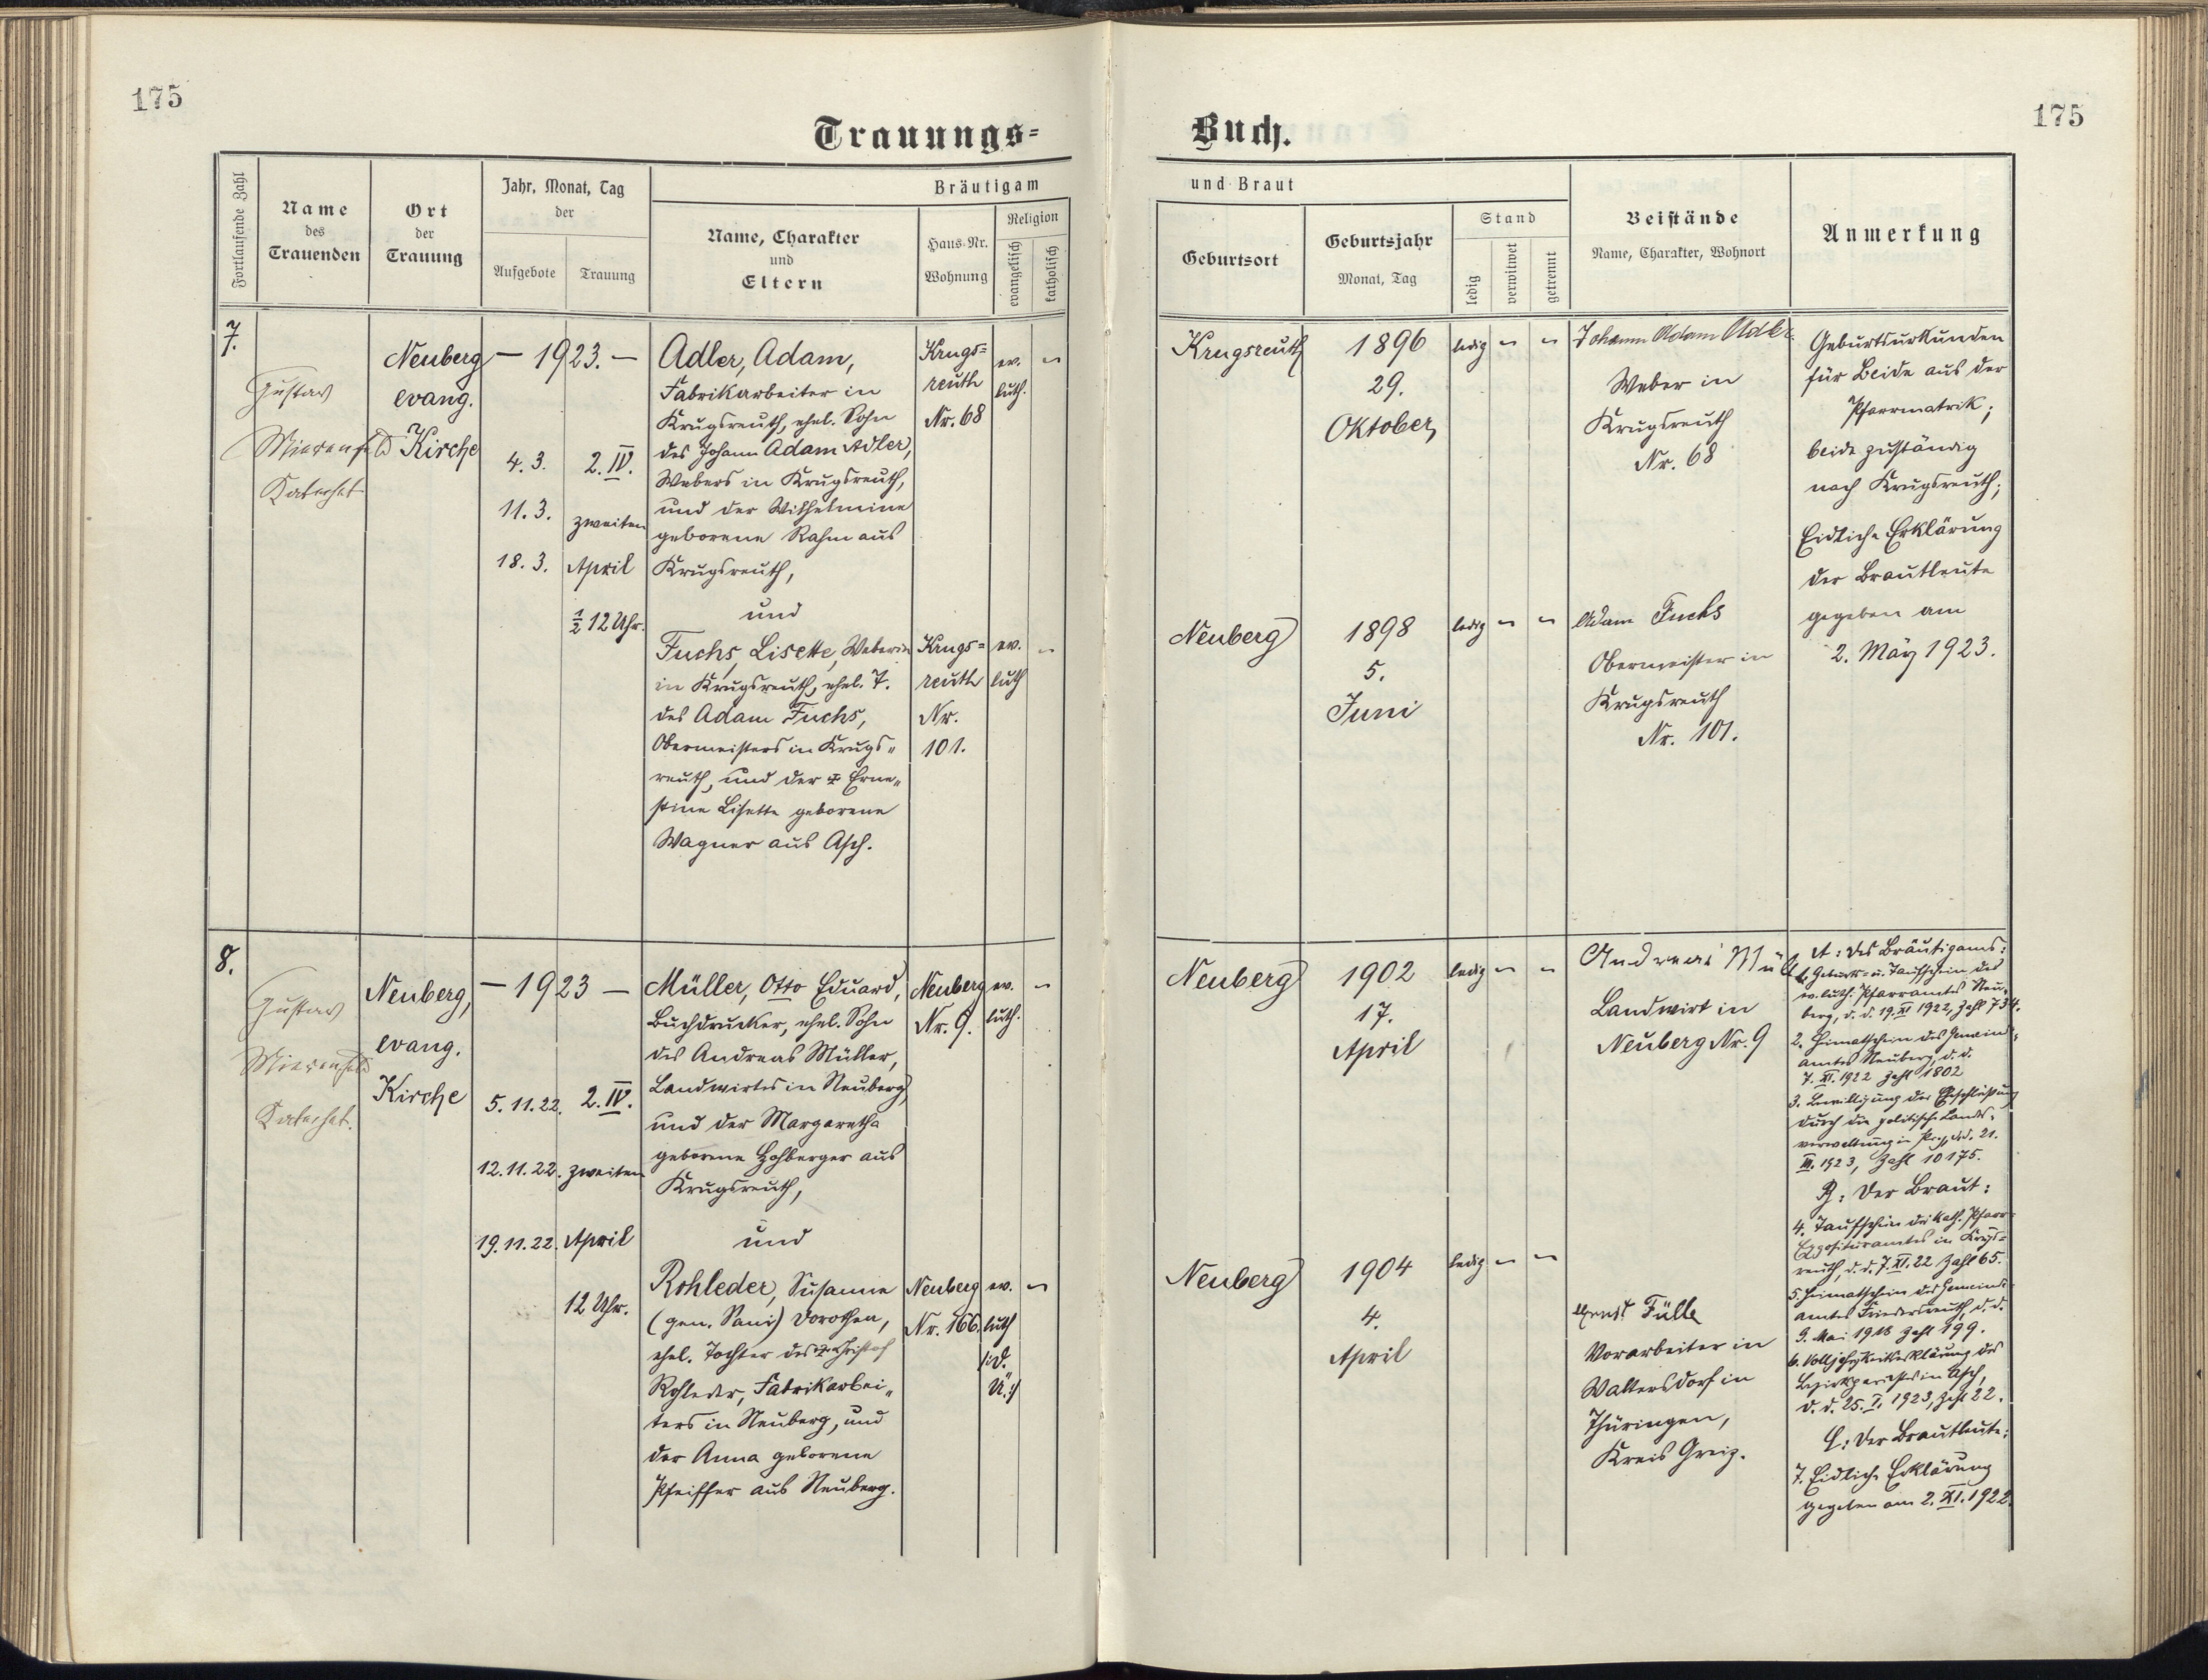 175
175
Trauungs=
Buch.
Fortlaufende Zahl
Name
des
Trauenden
Ort
der
Trauung
Jahr, Monat, Tag
der
Aufgebote
Trauung
Bräutigam
Name, Charakter
und
Eltern
Haus-Nr.
Wohnung
Religion
evangelisch
katholisch
und Braut
Geburtsort
Geburtsjahr
Monat, Tag
Stand
ledig
verwitwet
getrennt
Beistände
Name, Charakter, Wohnort
Anmerkung
7.
Gustav
Katechet
Neuberg
evang.
Kirche
— 1923. —
4. 3.
11. 3.
18. 3.
2. IV.
zweiten
April
½ 12 Uhr.
Adler, Adam,
Fabrikarbeiter in
Krugsreuth, ehel. Sohn
des Johann Adam Adler,
Webers in Krugsreuth,
und der Wilhelmine
geborene Rahm aus
Krugsreuth,
und
Fuchs, Lisette, Weberin
in Krugsreuth, ehel. T.
des Adam Fuchs,
Obermeisters in Krugs-
reuth, und der ‡ Erne-
stine Lisette geborene
Wagner aus Asch.
Krugs=
reuth
Nr. 68
ev.
luth.
Krugs=
reuth
Nr.
101.
ev.
luth
Krugsreuth
1896
29.
Oktober
ledig
Johann Adam Adler
Weber in
Krugsreuth
Nr. 68
Neuberg
1898
5.
Juni
ledig
Adam Fuchs
Obermeister in
Krugsreuth
Nr. 101.
Geburtsurkunden
für Beide aus der
Pfarrmatrik;
beide zuständig
nach Krugsreuth;
Eidliche Erklärung
der Brautleute
gegeben am
2. März 1923.
8.
Gustav
Katechet.
Neuberg,
evang.
Kirche
— 1923 —
5. 11. 22.
12. 11. 22.
19. 11. 22.
2. IV.
zweiten
April
12 Uhr.
Müller, Otto Eduard,
Buchdrucker, ehel. Sohn
des Andreas Müller,
Landwirtes in Neuberg,
und der Margaretha
geborene Hohberger aus
Krugsreuth,
und
Rohleder, Susanne
(gen. Sani) Dorothea,
ehel. Tochter des ‡ Christof
Rohleder, Fabrikarbei-
ters in Neuberg, und
der Anna geborene
Pfeiffer aus Neuberg.
Neuberg
Nr. 9.
ev.
luth.
Neuberg
Nr. 166.
ev.
luth
Neuberg
1902
17.
April
ledig
Andreas Müll
Landwirt in
Neuberg Nr. 9
Neuberg
1904
4.
April
ledig
Ernst Fülle
Vorarbeiter in
Waltersdorf in
Thüringen,
Kreis Greiz.
A: des Bräutigams:
1. Geburts- u. Taufschein des
ev. luth. Pfarramtes Neu-
berg, d. d. 19. XI 1922, Zahl 734.
2. Heimatschein des Gemeinde-
amtes Neuberg, d. d.
7. XI. 1922 Zahl 1802
3. Bewilligung der Eheschließung
durch die politische Landes-
verwaltung in Prag, d. d. 21.
III. 1923, Zahl 10175.
B: der Braut:
4. Taufschein des kath. Pfarr-
Exposituramtes in Krugs=
reuth, d. d. 7. XI. 22 Zahl 65.
5. Heimatschein des Gemeinde-
amtes Friedersreuth, d. d.
9. Mai 1918 Zahl 199.
6. Volljährigkeitserklärung des
Bezirksgerichtes in Asch,
d. d. 25. I. 1923, Zahl 22.
C: der Brautleute:
7. Eidliche Erklärung
gegeben am 2. XI. 1922.